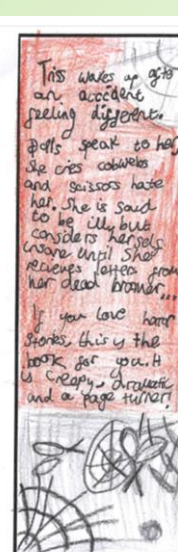 Triss wakes up after
an accident
feeling different.
Dolls speak to her,
she cries cobwebs
and scissors hate
her. She is said
to be ill, but
considers herself
insane until she
recieves letters from
her dead brother...
If you love horror
stories, this is the
book for you. It
is creepy, dramatic
and a page turner!